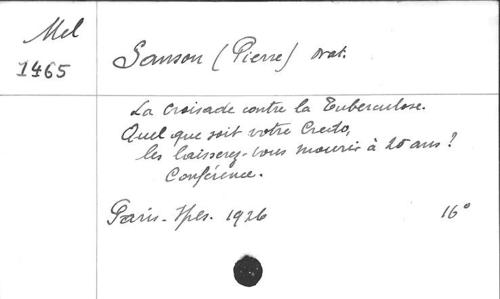 Mel
1465
Sanson (Pierre) Orat.
La Croisade contre la Tuberculose.
Quel que soit votre Credo,
les laisserez-vous mourir à 20 ans ?
Conférence.
Paris - 1926 16°